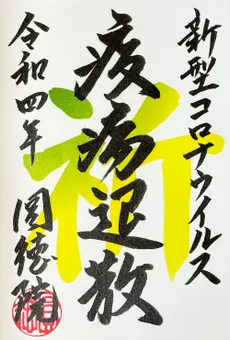 新型コロナウイルス
祈
疫病退散
令和四年
圓徳院